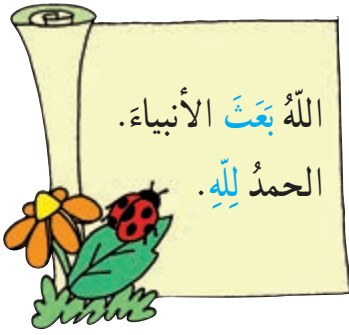 اللّهُ بَعَثَ الأنبياءَ.
الحمدُ لِلّهِ.